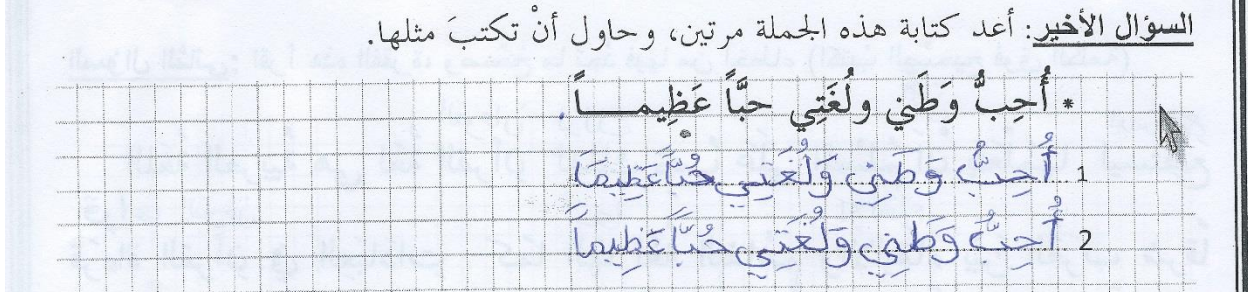 السؤال الأخير: أعد كتابة هذه الجملة مرتين، وحاول أنْ تكتبَ مثلها.
* أُحِبُّ وَطَني ولُغَتِي حبَّاً عَظِيمـــــاً.
1 .. أُحِبُّ وَطَنِي وَلُغَتِي حُبَّاً عَظِيمَاً
2 .. أُحِبُّ وَطَنِي وَلُغَتِي حُبَّاً عَظِيماً